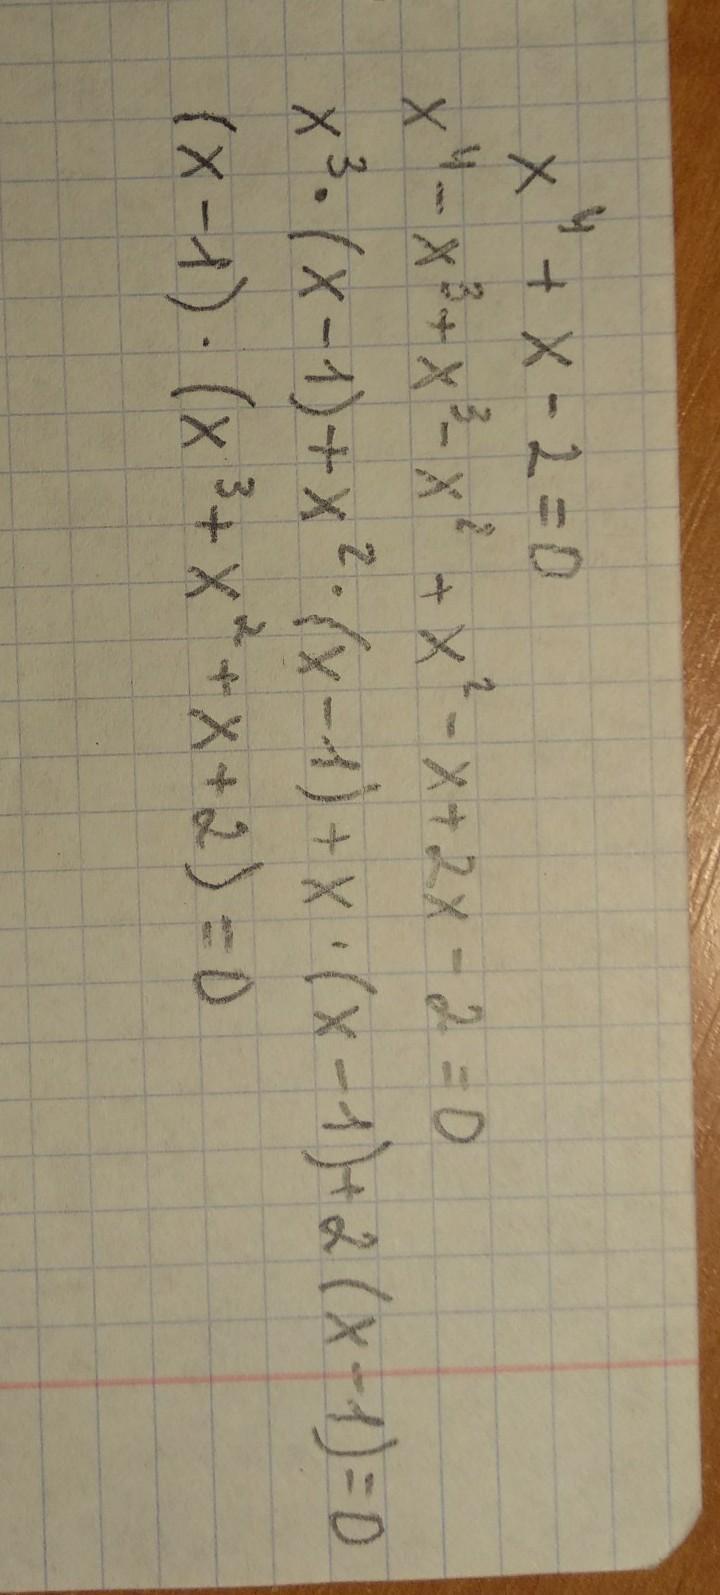 x⁴ + x - 2 = 0
x⁴ - x³ + x³ - x² + x² - x + 2x - 2 = 0
x³ · (x - 1) + x² · (x - 1) + x · (x - 1) + 2(x - 1) = 0
(x - 1) · (x³ + x² + x + 2) = 0